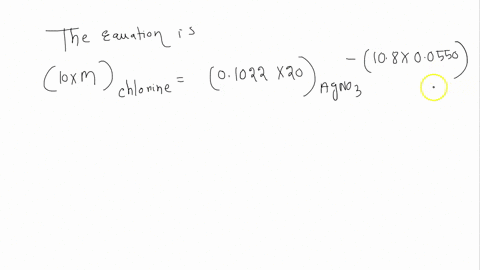 The Equation is
(10×M) chlorine = (0.1022 ×20) AgNO3 - (10.8× 0.0550)